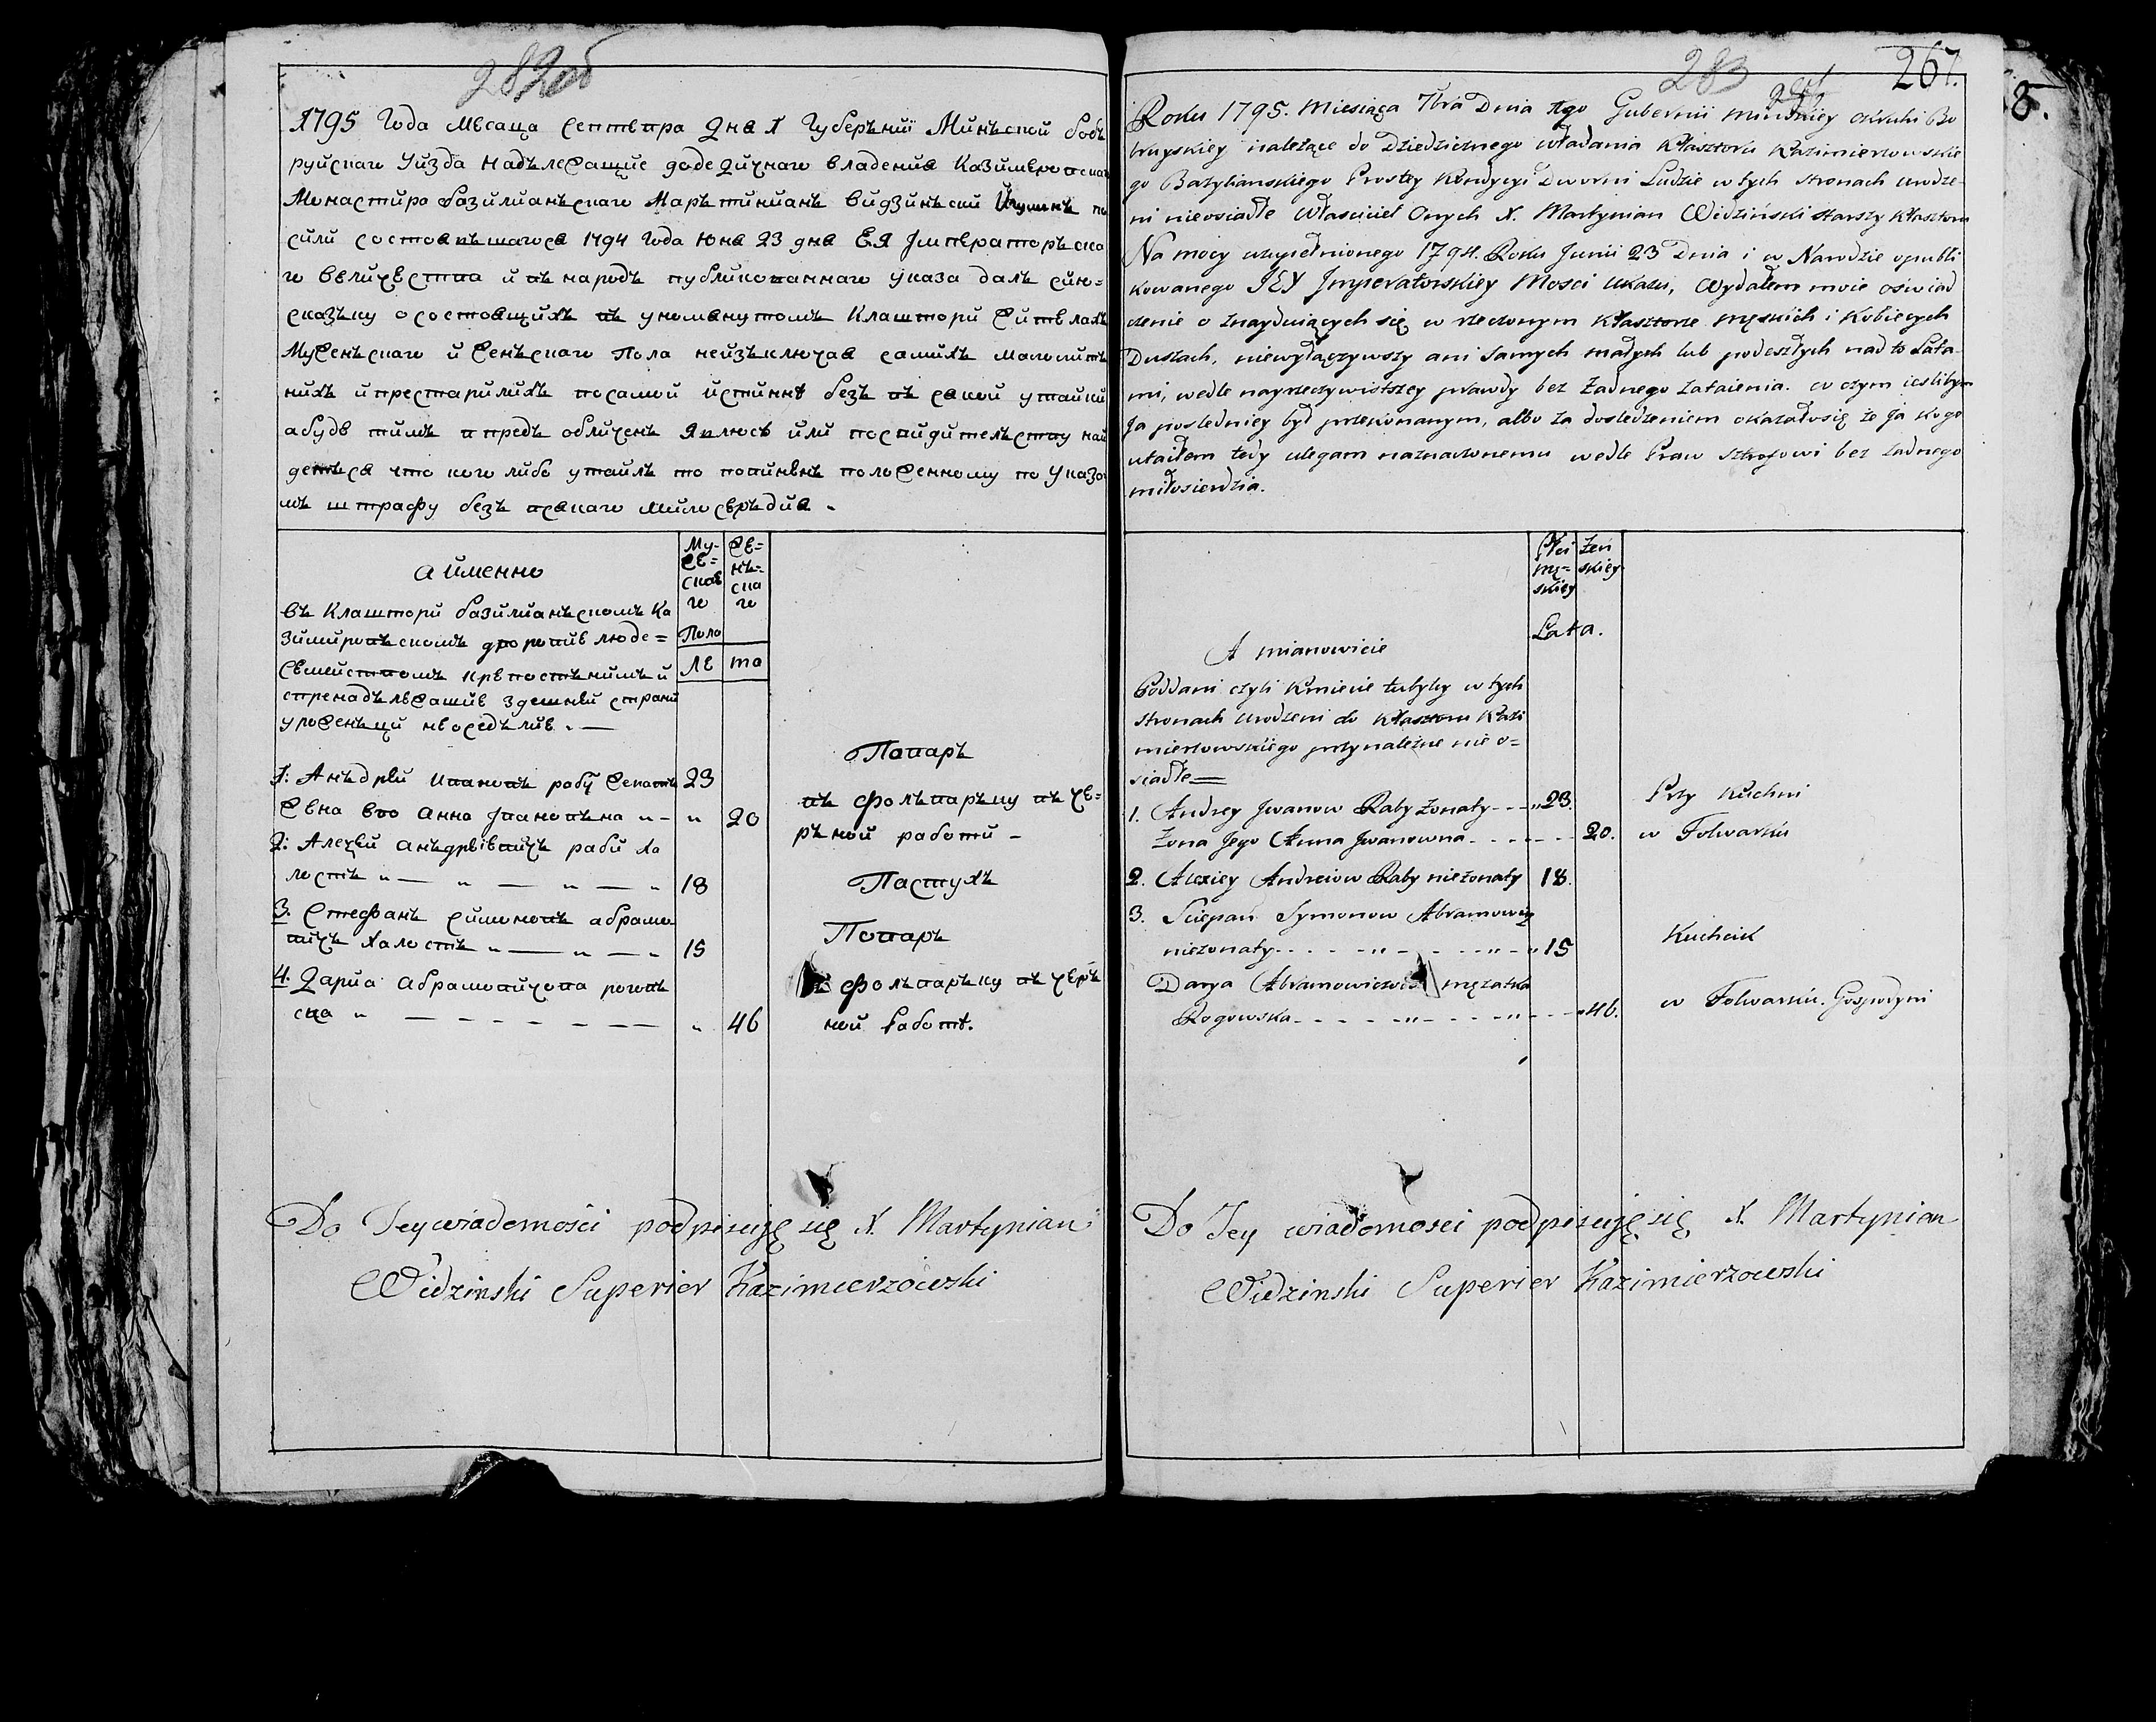 282об
1795 Года Месяца Септевра Дня 1 Губерънии Минъской бобъ
руйскаго Уизда надълежащие додедичнаго владения Казимеровскаго
Монастира базилианъскаго Маръ тиниянъ Видзинъский Игуменъ по
сили состоявъшагося 1794 года Юня 23 дня ЕЯ Императоръска
го величества и въ народъ публикованнаго указа далъ сию=
сказъку о состоящихъ въ упомянутомъ Клаштори жителахъ
Мужеиъскаго и женъскаго пола неизъключая самихъ малолит
нихъ и престарилихъ посамой истинне безъ въсякой утайки
абуде тимъ въпредь обличенъ явлюсь или посвидителъству най
детъся что кого либо утаилъ то повиненъ положенному по указо
мъ штрафу безъ всякаго милосеръдия .
а имменно
Му-
же=
скаго
же=
нъ=
ска
го
Пола
ле та
въ Клаштори базилианъскомъ Ка
зимировъскомъ дворовие люде=
семейством крепостънимъ и
спренадълежащие здешней страни
уроженъци неоседълие . —
1: Анъдрей Ивановъ рабу женатъ 23
жена ево Анна Ивановъна „ – „ 20
2: Алецей анъдреевичъ раби хо
лостъ „ — „ — „ — „ 18
3. Стефанъ симоновъ абрамо
вичъ халостъ „ — „ — „ 15
4. Дария абрамовичова роговъ
ска „ — — — — — — „ 46
Поваръ
въ фолъваръку въ че=
ръной работи –
Пастухъ
Поваръ
въ фолъваръку въ черъ
ной работе.
Do Tey wiadomości podpisuję się X. Martynian
Widzinski Superier Kazimierzowski
283
267.
8.
Roku 1795. Miesiąca 7bra Dnia 1go Gubernii Minskiey okruhi Bo
bruyskiey należące do Dziedzicznego władania Klasztoru Kazimierzowskie
go Bazylianskiego Prostey Kondycyi Dworni Ludzie w tych stronach urodze-
ni nieosiadłe Właściciel Onych X. Martynian Widziński starszy Klasztoru
Na mocy uzupełnionego 1794. Roku Junii 23 Dnia i w Narodzie opubli
kowanego JEY Imperatorskiey Mosci ukazu, Wydałem moie oświad
czenie o znayduiących się w rzeczonym Klasztorze męskich i Kobiecych
Duszach, niewyłączywszy ani samych małych lub podeszłych nad to Lata-
mi, wedle nayrzeczywistszey prawdy bez żadnego zataienia. w czym ieslibym
Ja posledniey był przekonanym, albo za dosledzeniem okazałosię że Ja kogo
utaiłem tedy ulegam naznaczonemu wedle Praw sztrofowi bez żadnego
miłosierdzia.
Płci
mę=
skiey
żeń
skiey
Lata.
A mianowicie
Poddani czyli Kmiecie tutyszy w tych
stronach urodzeni do Klasztoru Kazi
mierzowskiego przynależne nie o=
siadłe —
1. Andrzey Jwanow Raby żonaty - - - „ 23.
Żona Jego Anna Jwanowna - - - - - - 20.
2. Alexiey Andreiow Raby nieżonaty 18.
3. Sciepan Symonow Abramowicz
nieżonaty - - - „ - - - „ 15
Darya Abramowiczowa mężatka
Rogowska - - - - „ - - - „ - - - 46.
Przy Kuchni
w Folwarku
Kuchcik
w Folwarku. Gospodyni
Do Tey wiadomosci podpisuję się X. Martynian
Widzinski Superier Kazimierzowski